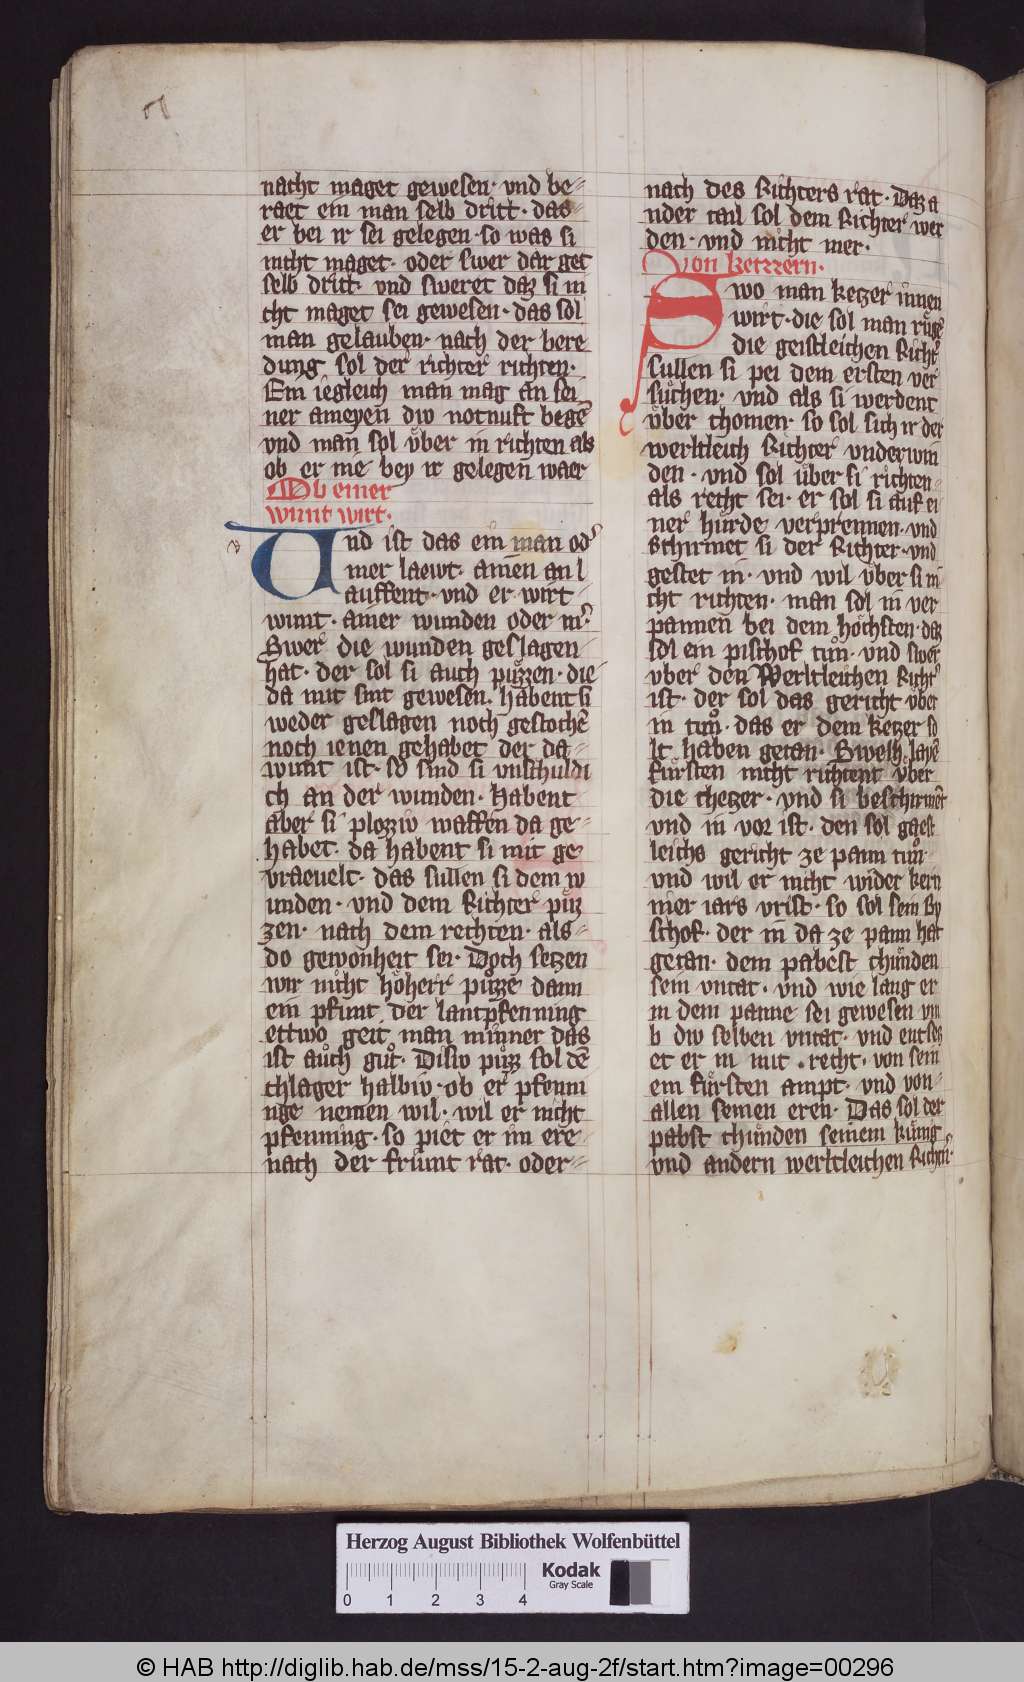 nacht maget gewesen· vnd be-
raet ein man selb dritt· das
er bei ir sei gelegen· so was si
nicht maget· oder swer dar get
selb dritt· vnd sweret daz si ni
cht maget sei gewesen· das sol
man gelauben· nach der bere
dung sol der richter richten·
Ein iegleich man mag an sei
ner ameyen div notnuft begen̄
vnd man sol v̈ber in richten als
ob er nie bey ir gelegen waer
Ob einer
wunt wirt·
Und ist das ein man od᾽
mer laewt· ainen an l
auffent· vnd er wirt
wunt· ainer wunden oder m᾽·
Swer die wunden geslagen
hat· der sol si auch puͤzzen· die
da mit sint gewesen· habent si
weder geslagen noch gestochē
noch ienen gehabet der da-
wunt ist· so sind si vnschuldi
ch an der wunden· Habent
aber si plozziv waffen da ge-
habet· da habent si mit ge
vraeuelt· das sullen si dem w
unden· vnd dem Richter puͤz
zen· nach dem rechten· als-
do gewonheit sei· Doch setzen
wir nicht hoͤherr puͤzze dann
ein pfunt der lantpfenning
ettwo geit man minner das
ist auͦch guͦt· Disiv puͤzz sol dē
chlager halbiv· ob er pfenni
nge nemen wil· wil er nicht
pfenning· so piet er im ere
nach der friunt rat· oder-
nach des Richters rat· Daz a
nder tail sol dem Richter wer
den· vnd nicht mer·
Von ketzzern·
Swo man ketzer innen
wirt· die sol man ruͤgē
die geistleichen Richt᾽
sullen si pei dem ersten ver
suͦchen· vnd als si werdent
v̈ber chomen· so sol sich ir der
werltleich Richter vnderwin
den· vnd sol v̈ber si richten-
als recht sei· er sol si auf ei
ner huͤrde verprennen· vnd
schirmet si der Richter· vnd
gestet in· vnd wil v̈ber si ni
cht richten· man sol in ver
pannen bei dem hoͤchsten· daz
sol ein pischof tuͦn· vnd swer
vber den Werltleichen Richt᾽
ist· der sol das gericht v̈ber
in tuͦn· das er dem ketzer so
lt haben getan· Swelh layē
fuͤrsten nicht richtent v̈ber
die chetzer· vnd si beschirmēt
vnd in vor ist· den sol gaist
leichs gericht ze pann tuͦn·
vnd wil er nicht wider kern
nier iars vrist· so sol sein By
schof· der in da ze pann hat
getan· dem pabest chuͤnden
sein vntat· vnd wie lang er
in dem panne sei gewesen vm
b div selben vntat· vnd entsetz
et er in mit· recht· von sein
em fuͤrsten ampt· vnd von-
allen seinen eren· Das sol der
pabst chuͤnden seinem kuͤnig
vnd andern werltleichen Richtn᾽·
Herzog August Bibliothek Wolfenbüttel
Kodak
Gray Scale
0 1 2 3 4
© HAB http://diglib.hab.de/mss/15-2-aug-2f/start.htm?image=00296